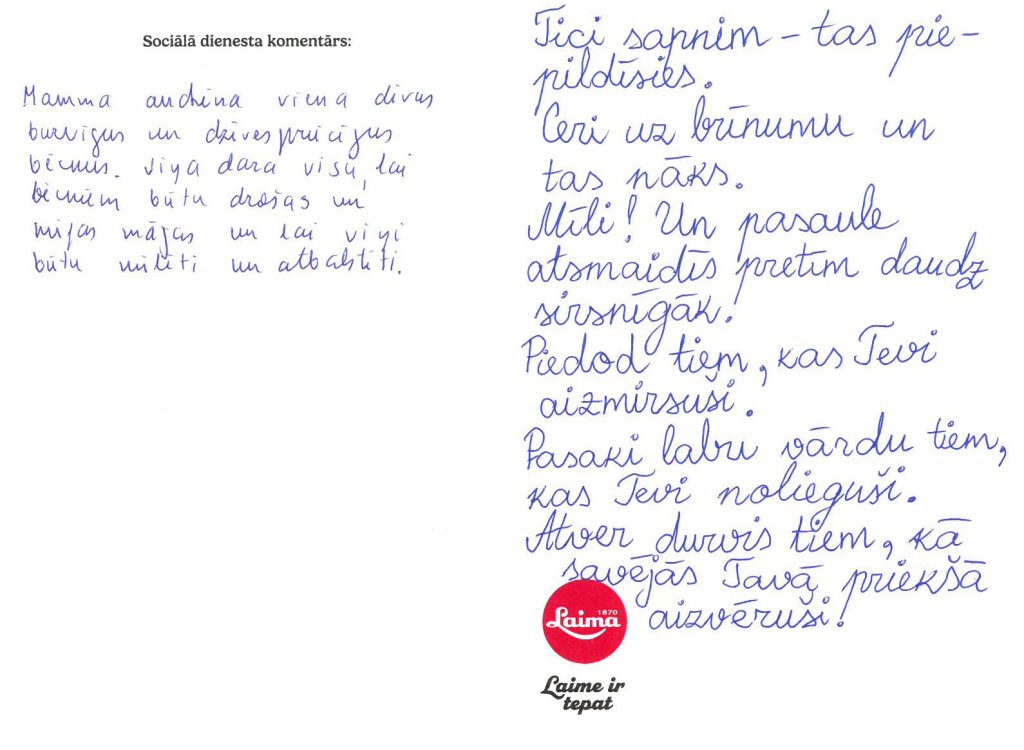 Sociālā dienesta komentārs:
Mamma audzina viena divus
burvīgus un dzīvespriecīgus
bērnus. Viņa dara visu, lai
bērniem būtu drošas un
mijas mājas un lai viņi
būtu mīlēti un atbalstīti.
Tici sapnim – tas pie-
pildīsies.
Ceri uz brīnumu un
tas nāks.
Mīli! Un pasaule
atsmaidīs pretim daudz
sirsnīgāk!
Piedod tiem, kas Tevi
aizmirsuši.
Pasaki labu vārdu tiem,
kas Tevi nolieguši.
Atver durvis tiem, kā
savējās Tavā priekšā
aizvēruši!
1870
Laima
Laime ir
tepat